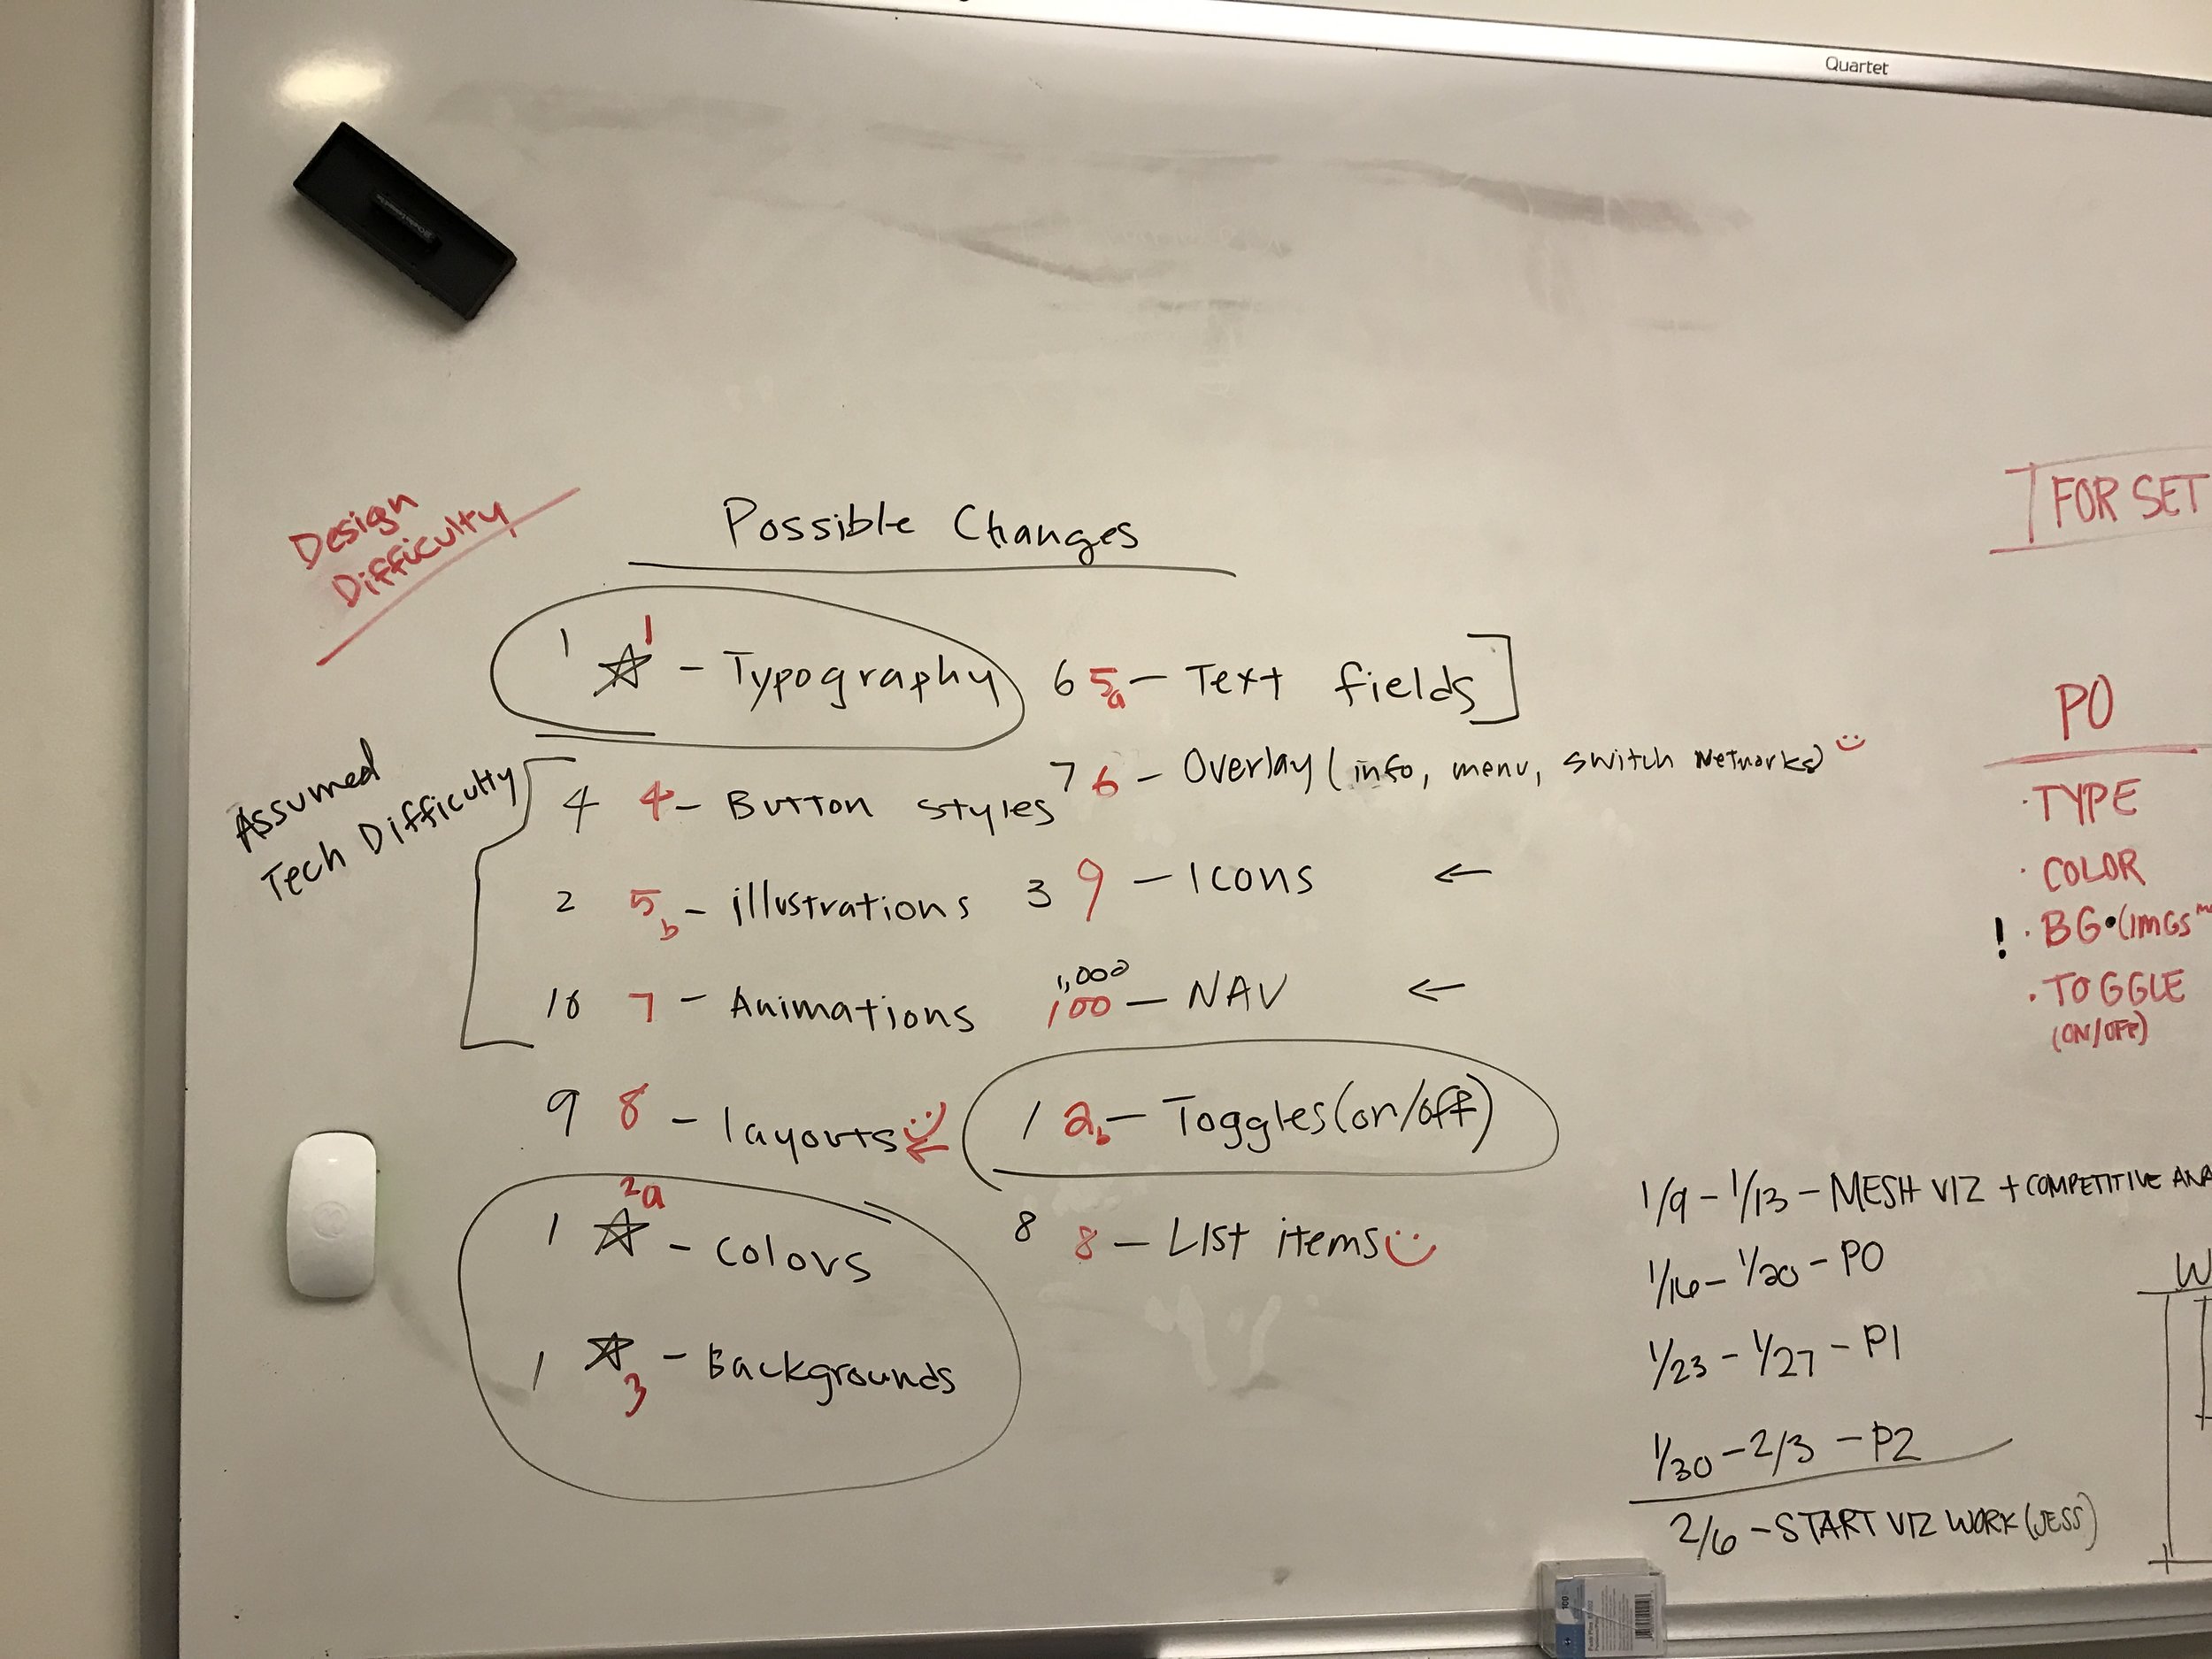 Quartet
Design
Difficulty
Possible Changes
1 1 - Typography
6 5a - Text fields]
Assumed
Tech Difficulty
4 4 - Button styles
7 6 - Overlay (info, menu, switch Networks)
2 5b - illustrations
3 9 - Icons ←
10 7 - Animations
1,000
100 - NAV ←
9 8 - layouts
1 2b - Toggles (on/off)
1 2a - Colors
8 8 - List items
1 3 - Backgrounds
FOR SET
P0
· TYPE
· COLOR
! · BG • (IMGS
· TOGGLE
(ON/OFF)
1/9 - 1/13 - MESH VIZ + COMPETITIVE ANA
1/16 - 1/20 - P0
1/23 - 1/27 - P1
1/30 - 2/3 - P2
2/6 - START VIZ WORK (JESS)
W
100